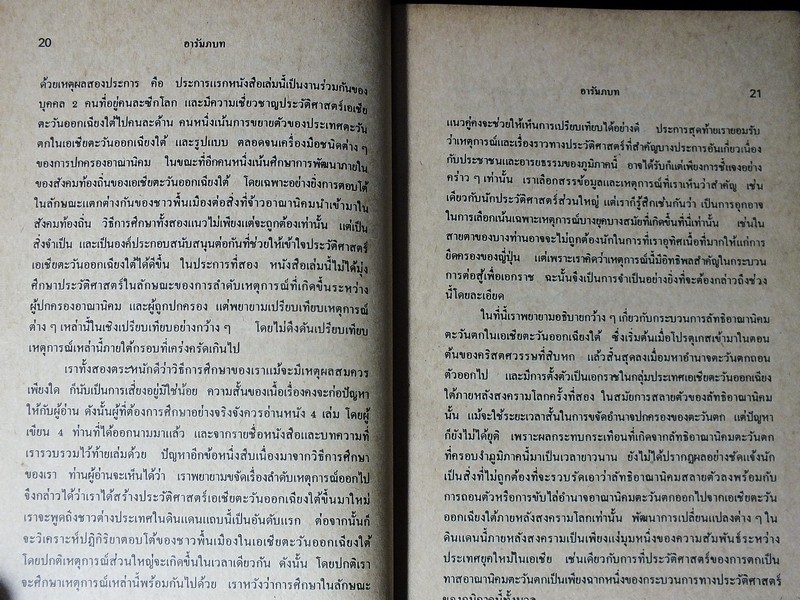 20
อารัมภบท
ด้วยเหตุผลสองประการ คือ ประการแรกหนังสือเล่มนี้เป็นงานร่วมกันของ
บุคคล 2 คนที่อยู่คนละซีกโลก และมีความเชี่ยวชาญประวัติศาสตร์เอเชีย
ตะวันออกเฉียงใต้ไปคนละด้าน คนหนึ่งเน้นการขยายตัวของประเทศตะวัน
ตกในเอเชียตะวันออกเฉียงใต้ และรูปแบบ ตลอดจนเครื่องมือชนิดต่าง ๆ
ของการปกครองอาณานิคม ในขณะที่อีกคนหนึ่งเน้นศึกษาการพัฒนาภายใน
ของสังคมท้องถิ่นของเอเชียตะวันออกเฉียงใต้ โดยเฉพาะอย่างยิ่งการตอบโต้
ในลักษณะแตกต่างกันของชาวพื้นเมืองต่อสิ่งที่จ้าวอาณานิคมนำเข้ามาใน
สังคมท้องถิ่น วิธีการศึกษาทั้งสองแนวไม่เพียงแต่จะถูกต้องเท่านั้น แต่เป็น
สิ่งจำเป็น และเป็นองค์ประกอบสนับสนุนต่อกันที่ช่วยให้เข้าใจประวัติศาสตร์
เอเชียตะวันออกเฉียงใต้ได้ดีขึ้น ในประการที่สอง หนังสือเล่มนี้ไม่ได้มุ่ง
ศึกษาประวัติศาสตร์ในลักษณะของการลำดับเหตุการณ์ที่เกิดขึ้นระหว่าง
ผู้ปกครองอาณานิคม และผู้ถูกปกครอง แต่พยายามเปรียบเทียบเหตุการณ์
ต่าง ๆ เหล่านี้ในเชิงเปรียบเทียบอย่างกว้าง ๆ โดยไม่ดึงดันเปรียบเทียบ
เหตุการณ์เหล่านี้ภายใต้กรอบที่เคร่งครัดเกินไป
เราทั้งสองตระหนักดีว่าวิธีการศึกษาของเราแม้จะมีเหตุผลสมควร
เพียงใด ก็นับเป็นการเสี่ยงอยู่มิใช่น้อย ความสั้นของเนื้อเรื่องคงจะก่อปัญหา
ให้กับผู้อ่าน ดังนั้นผู้ที่ต้องการศึกษาอย่างจริงจังควรอ่านหนัง 4 เล่ม โดยผู้
เขียน 4 ท่านที่ได้ออกนามมาแล้ว และจากรายชื่อหนังสือและบทความที่
เรารวบรวมไว้ท้ายเล่มด้วย ปัญหาอีกข้อหนึ่งสืบเนื่องมาจากวิธีการศึกษา
ของเรา ท่านผู้อ่านจะเห็นได้ว่า เราพยายามขจัดเรื่องลำดับเหตุการณ์ออกไป
จึงกล่าวได้ว่าเราได้สร้างประวัติศาสตร์เอเชียตะวันออกเฉียงใต้ขึ้นมาใหม่
เราจะพูดถึงชาวต่างประเทศในดินแดนแถบนี้เป็นอันดับแรก ต่อจากนั้นก็
จะวิเคราะห์ปฏิกิริยาตอบโต้ของชาวพื้นเมืองในเอเชียตะวันออกเฉียงใต้
โดยปกติเหตุการณ์ส่วนใหญ่จะเกิดขึ้นในเวลาเดียวกัน ดังนั้น โดยปกติเรา
จะศึกษาเหตุการณ์เหล่านี้พร้อมกันไปด้วย เราหวังว่าการศึกษาในลักษณะ
อารัมภบท
21
แนวคู่คงจะช่วยให้เห็นการเปรียบเทียบได้อย่างดี ประการสุดท้ายเรายอมรับ
ว่าเหตุการณ์และเรื่องราวทางประวัติศาสตร์ที่สำคัญบางประการอันเกี่ยวเนื่อง
กับประชาชนและอารยธรรมของภูมิภาคนี้ อาจได้รับก็แต่เพียงการชี้แจงอย่าง
คร่าว ๆ เท่านั้น เราเลือกสรรข้อมูลและเหตุการณ์ที่เราเห็นว่าสำคัญ เช่น
เดียวกับนักประวัติศาสตร์ส่วนใหญ่ แต่เราก็รู้สึกเช่นกันว่า เป็นการอุกอาจ
ในการเลือกเน้นเฉพาะเหตุการณ์บางยุคบางสมัยที่เกิดขึ้นที่นี่เท่านั้น เช่นใน
สายตาของบางท่านอาจจะไม่ถูกต้องนักในการที่เราอุทิศเนื้อที่มากให้แก่การ
ยึดครองของญี่ปุ่น แต่เพราะเราคิดว่าเหตุการณ์นี้มีอิทธิพลสำคัญในกระบวน
การต่อสู้เพื่อเอกราช ฉะนั้นจึงเป็นการจำเป็นอย่างยิ่งที่จะต้องกล่าวถึงช่วง
นี้โดยละเอียด
ในที่นี้เราพยายามอธิบายกว้าง ๆ เกี่ยวกับกระบวนการลัทธิอาณานิคม
ตะวันตกในเอเชียตะวันออกเฉียงใต้ ซึ่งเริ่มต้นเมื่อโปรตุเกสเข้ามาในตอน
ต้นของคริสตศวรรษที่สิบหก แล้วสิ้นสุดลงเมื่อมหาอำนาจตะวันตกถอน
ตัวออกไป และมีการตั้งตัวเป็นเอกราชในกลุ่มประเทศเอเชียตะวันออกเฉียง
ใต้ภายหลังสงครามโลกครั้งที่สอง ในสมัยการสลายตัวของลัทธิอาณานิคม
นั้น แม้จะใช้ระยะเวลาสั้นในการขจัดอำนาจปกครองของตะวันตก แต่ปัญหา
ก็ยังไม่ได้ยุติ เพราะผลกระทบกระเทือนที่เกิดจากลัทธิอาณานิคมตะวันตก
ที่ครอบงำภูมิภาคนี้มาเป็นเวลายาวนาน ยังไม่ได้ปรากฏผลอย่างชัดแจ้งนัก
เป็นสิ่งที่ไม่ถูกต้องที่จะรวบรัดเอาว่าลัทธิอาณานิคมสลายตัวลงพร้อมกับ
การถอนตัวหรือการขับไล่อำนาจอาณานิคมตะวันตกออกไปจากเอเชียตะวัน
ออกเฉียงใต้ภายหลังสงครามโลกเท่านั้น พัฒนาการเปลี่ยนแปลงต่าง ๆ ใน
ดินแดนนี้ภายหลังสงครามเป็นเพียงแง่มุมหนึ่งของความสัมพันธ์ระหว่าง
ประเทศยุคใหม่ในเอเชีย เช่นเดียวกับการที่ประวัติศาสตร์ของการตกเป็น
ทาสอาณานิคมตะวันตกเป็นเพียงฉากหนึ่งของกระบวนการทางประวัติศาสตร์
ของภูมิภาคนี้ทั้งมวล